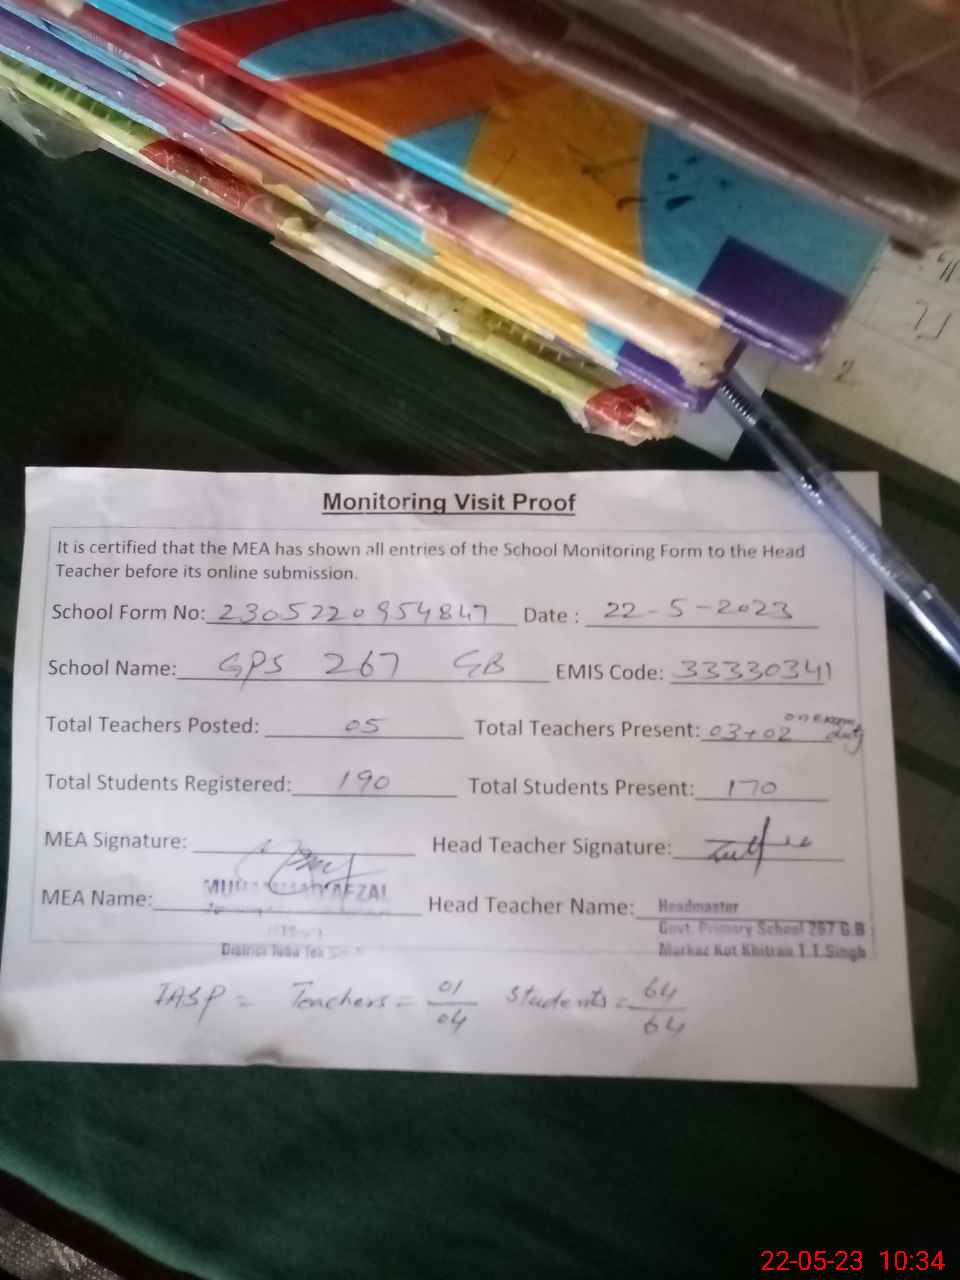 Monitoring Visit Proof
It is certified that the MEA has shown all entries of the School Monitoring Form to the Head
Teacher before its online submission.
School Form No: 2305220954847 Date : 22-5-2023
School Name: GPS 267 GB EMIS Code: 33330341
Total Teachers Posted: 05 Total Teachers Present: 03+02 on exam duty
Total Students Registered: 190 Total Students Present: 170
MEA Signature: Head Teacher Signature:
MEA Name: AFZAL Head Teacher Name: Headmaster
Govt. Primary School 267 G.B
District Toba Tek Markaz Kot Khitran T.T.Singh
IASP = Teachers = 01/04 Students = 64/64
22-05-23 10:34